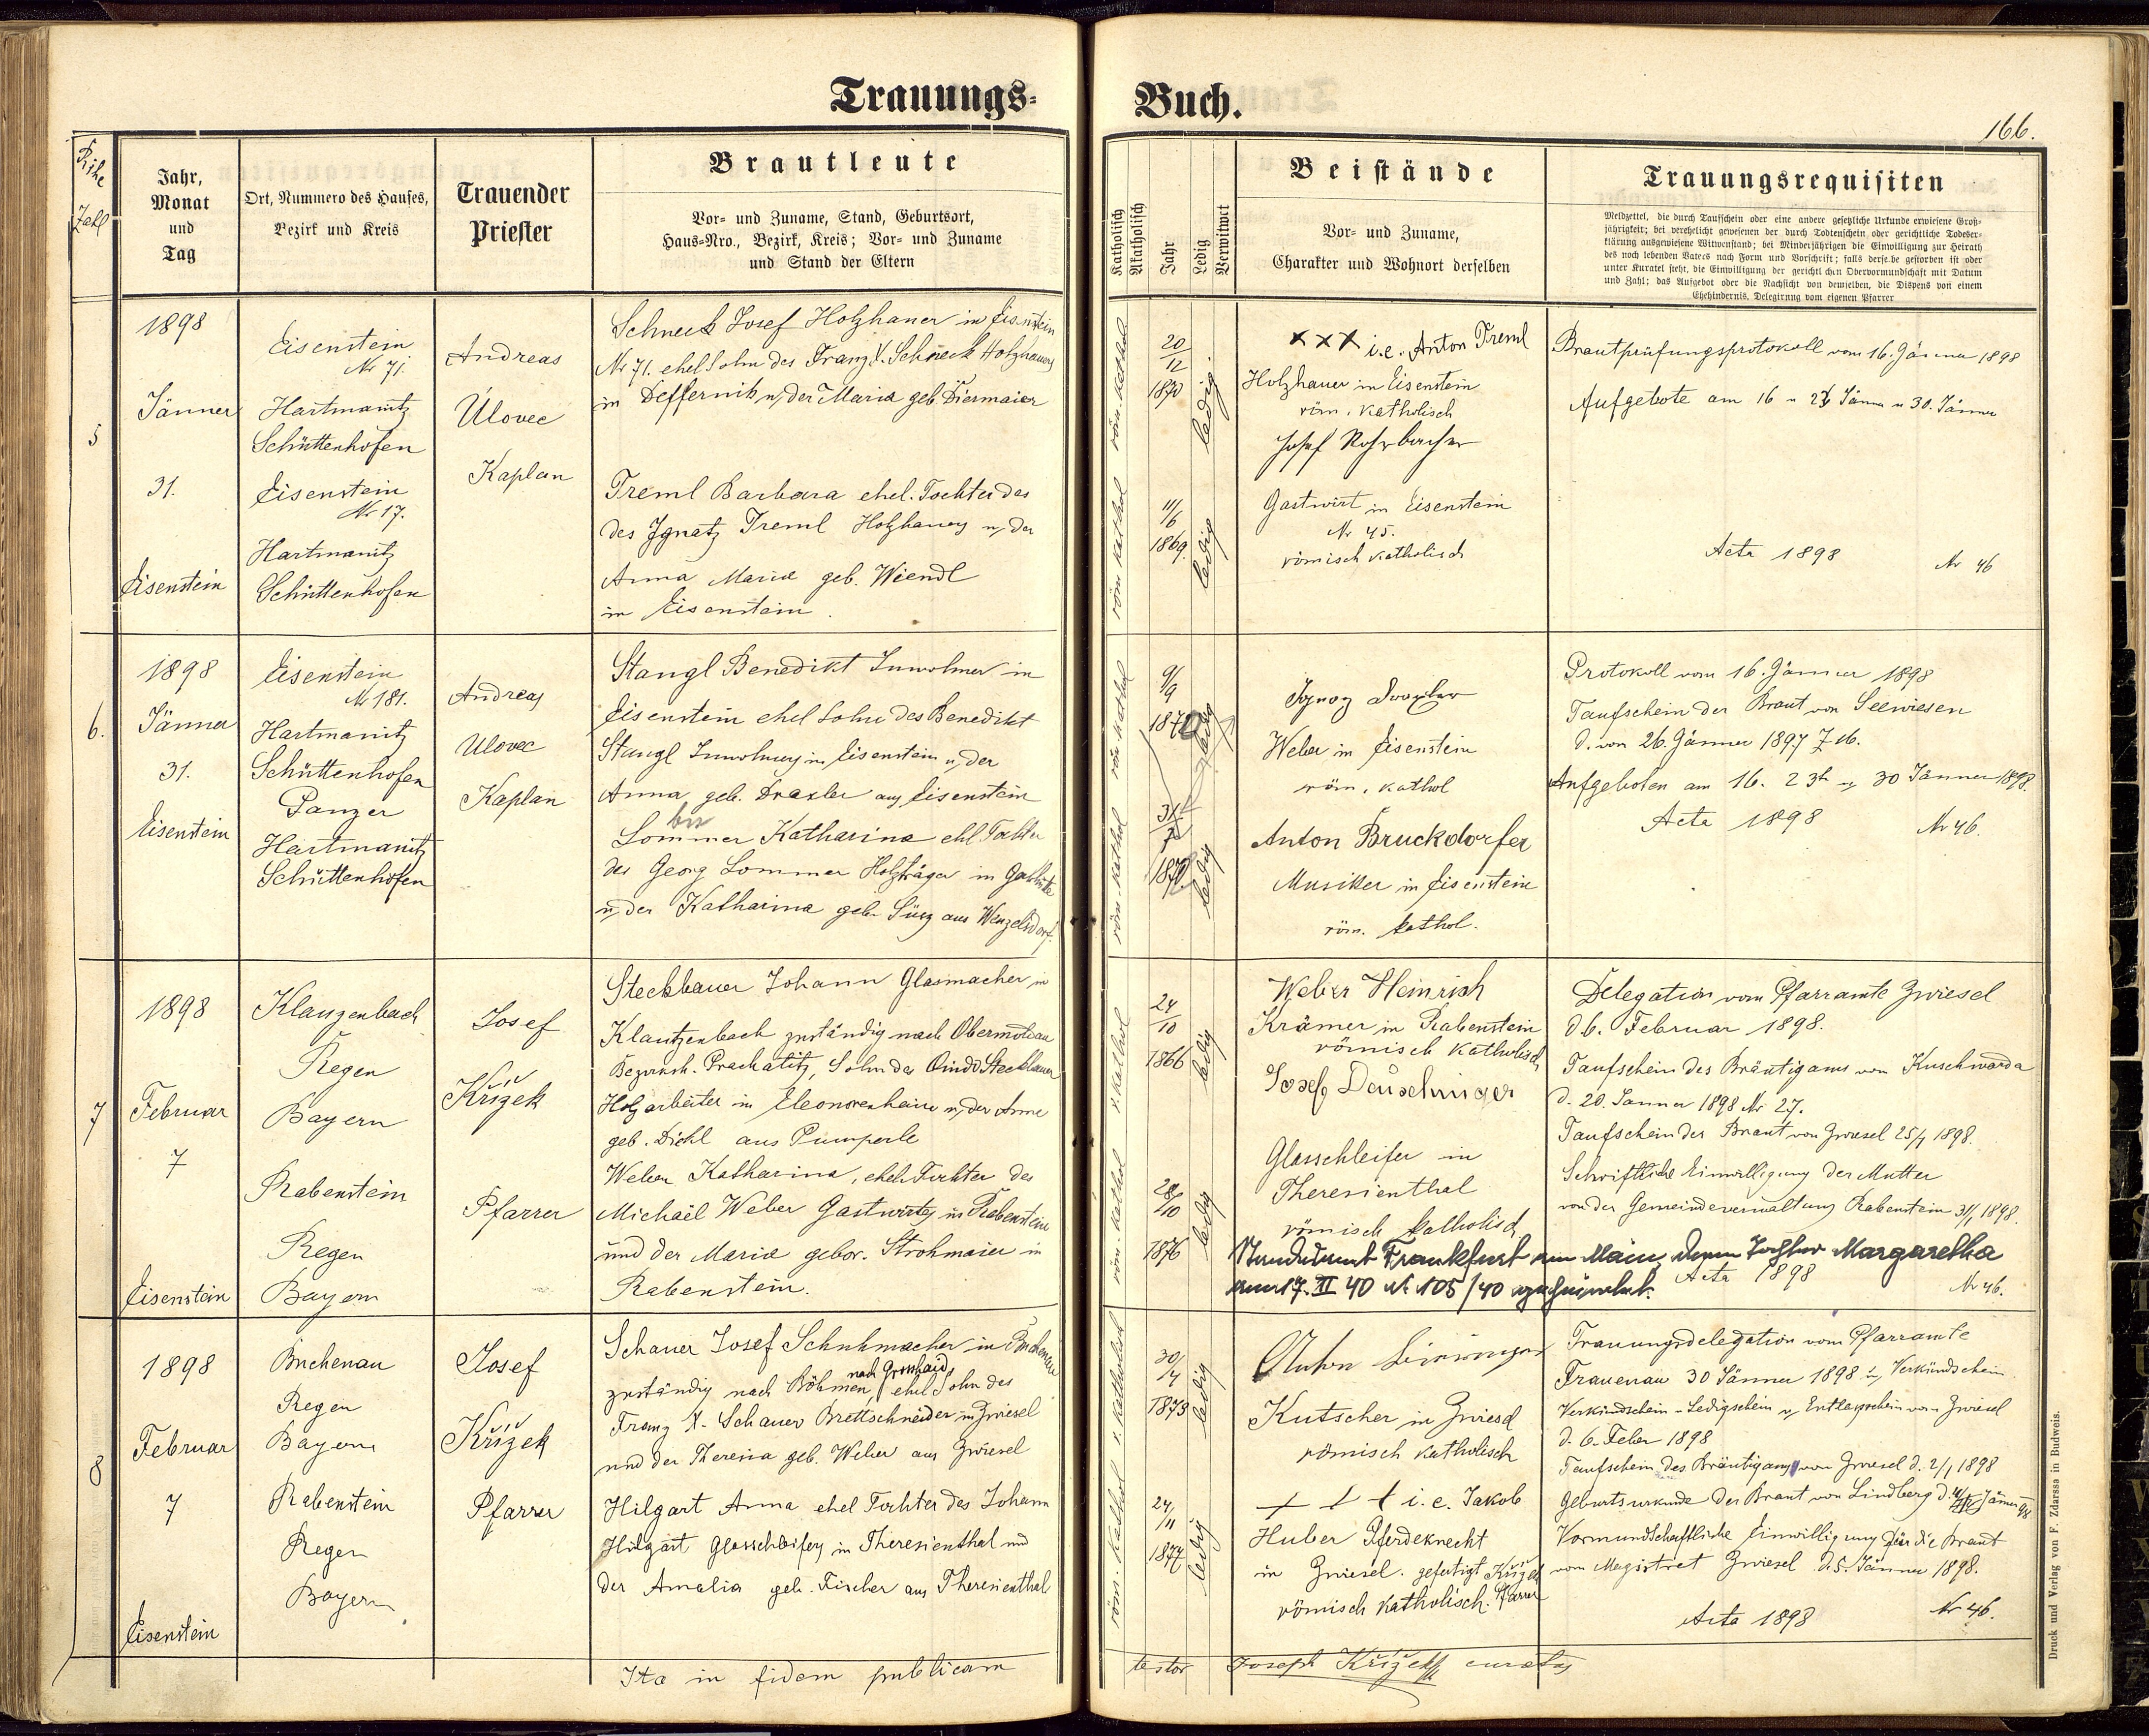 Trauungs-
Buch.
166.
Reihe
Zahl
Jahr,
Monat
und
Tag
Ort, Nummero des Hauses,
Bezirk und Kreis
Trauender
Priester
Brautleute
Vor- und Zuname, Stand, Geburtsort,
Haus-Nro., Bezirk, Kreis; Vor- und Zuname
und Stand der Eltern
Katholisch
Akatholisch
Jahr
Ledig
Verwitwet
Beistände
Vor- und Zuname,
Charakter und Wohnort derselben
Trauungsrequisiten
Meldzettel, die durch Taufschein oder eine andere gesetzliche Urkunde erwiesene Groß-
jährigkeit; bei verehelicht gewesenen der durch Todtenschein oder gerichtliche Todeser-
klärung ausgewiesene Witwenstand; bei Minderjährigen die Einwilligung zur Heirath
des noch lebenden Vaters nach Form und Vorschrift; falls derselbe gestorben ist oder
unter Kuratel steht, die Einwilligung der gerichtlichen Obervormundschaft mit Datum
und Zahl; das Aufgebot oder die Nachsicht von demselben, die Dispens von einem
Ehehindernis, Delegirung vom eigenen Pfarrer
5
1898
Jänner
31.
Eisenstein
Eisenstein
Nr 71.
Hartmanitz
Schüttenhofen
Eisenstein
Nr 17.
Hartmanitz
Schüttenhofen
Andreas
Úlovec
Kaplan
Schneck Josef Holzhauer in Eisenstein
Nr 71. ehel Sohn des Franz X. Schneck Holzhauers
in Deffernik u, der Maria geb. Diermaier
Treml Barbara ehel. Tochter des
des Ignatz Treml Holzhauers u, der
Anna Maria geb. Wiendl
in Eisenstein.
röm. kathol
20/12
1870
ledig
röm kathol
11/6
1869.
ledig
xxx i.e. Anton Treml
Holzhauer in Eisenstein
röm. katholisch
Josef Rohrbacher
Gastwirt in Eisenstein
Nr 45.
römisch katholisch
Brautprüfungsprotokoll vom 16. Jänner 1898
Aufgebote am 16 u 23 Jänner u 30. Jänner
Acta 1898 Nr 46
6.
1898
Jänner
31.
Eisenstein
Eisenstein
Nr 181.
Hartmanitz
Schüttenhofen
Panzer
Hartmanitz
Schüttenhofen
Andreas
Ulovec
Kaplan
Stangl Benedikt Inwohner in
Eisenstein ehel Sohn des Benedikt
Stangl Inwohners in Eisenstein u, der
Anna geb. Draxler aus Eisenstein
Sommer Katharina ehl Tochter
des Georg Sommer Holzträger in
u, der Katharina geb. Süss aus Wenzelsdorf.
röm kathol
9/9
1872
ledig
röm. kathol
31/7
1870
ledig
Ignaz Draxler
Weber in Eisenstein
röm. kathol
Anton Bruckdorfer
Musiker in Eisenstein
röm. kathol.
Protokoll vom 16. Jänner 1898
Taufschein der Braut von Seewiesen
d. von 26. Jänner 1897 Z 16.
Aufgeboten am 16. 23t u, 30 Jänner 1898.
Acta 1898 Nr 46.
7
1898
Februar
7
Eisenstein
Klauzenbach
Regen
Bayern
Rabenstein
Regen
Bayern
Josef
Křížek
Pfarrer
Steckbauer Johann Glasmacher in
Klautzenbach zuständig nach Obermoldau
Bezirksh. Prachatitz, Sohn des Steckbauer
Holzarbeiter in Eleonorenhain u, der Anna
geb. Dichl aus Pumperle
Weber Katharina, ehel. Tochter des
Michael Weber Gastwirts in Rabenstein
und der Maria gebor. Strohmaier in
Rabenstein.
r. kathol
24/10
1866
ledig
röm. kathol
28/10
1876
ledig
Weber Heinrich
Krämer in Rabenstein
römisch katholisch
Josef Dauschinger
Glasschleifer in
Theresienthal
römisch katholisch
Standesamt Frankfurt am Main, deren Tochter Margaretha
am 17. II 40 Nr 105/40
Delegation vom Pfarramte Zwiesel
d 6. Februar 1898.
Taufschein des Bräutigams von Kuschwarda
d. 20. Jänner 1898 Nr 27.
Taufschein der Braut von Zwiesel 25/1 1898.
Schriftliche Einwilligung der Mutter
von der Gemeindeverwaltung Rabenstein 31/1 1898.
Acta 1898 Nr 46.
8
1898
Februar
7
Eisenstein
Buchenau
Regen
Bayern
Rabenstein
Regen
Bayern
Josef
Křížek
Pfarrer
Schauer Josef Schuhmacher in Buchenau
nach Grosshaid
zuständig nach Böhmen ehel Sohn des
Franz X. Schauer Brettschneider in Zwiesel
und der Theresia geb. Weber aus Zwiesel
Hilgart Anna ehel Tochter des Johann
Hilgart Glasschleifers in Theresienthal und
der Amalia geb. Fischer aus Theresienthal
r. katholisch
30/4
1873
ledig
röm. kathol
24/11
1877
ledig
Anton
Kutscher in Zwiesel
römisch katholisch
+ + + i.e. Jakob
Huber Pferdeknecht
in Zwiesel. gefertigt Křížek
römisch katholisch. Pfarrer
Trauungsdelegation vom Pfarramte
Frauenau 30 Jänner 1898 u, Verkündschein
Verkündschein - Ledigschein u, Entlasschein von Zwiesel
d. 6. Feber 1898
Taufschein des Bräutigams von Zwiesel d. 2/1 1898
Geburtsurkunde der Braut von Lindberg d. Jänner 98
Vormundschaftliche Einwilligung für die Braut
vom Magistrat Zwiesel d. 5. Jänner 1898.
Acta 1898 Nr 46.
Ita in fidem publicam
testor Joseph Křížek curatus
Druck und Verlag von F. Zdarssa in Budweis.